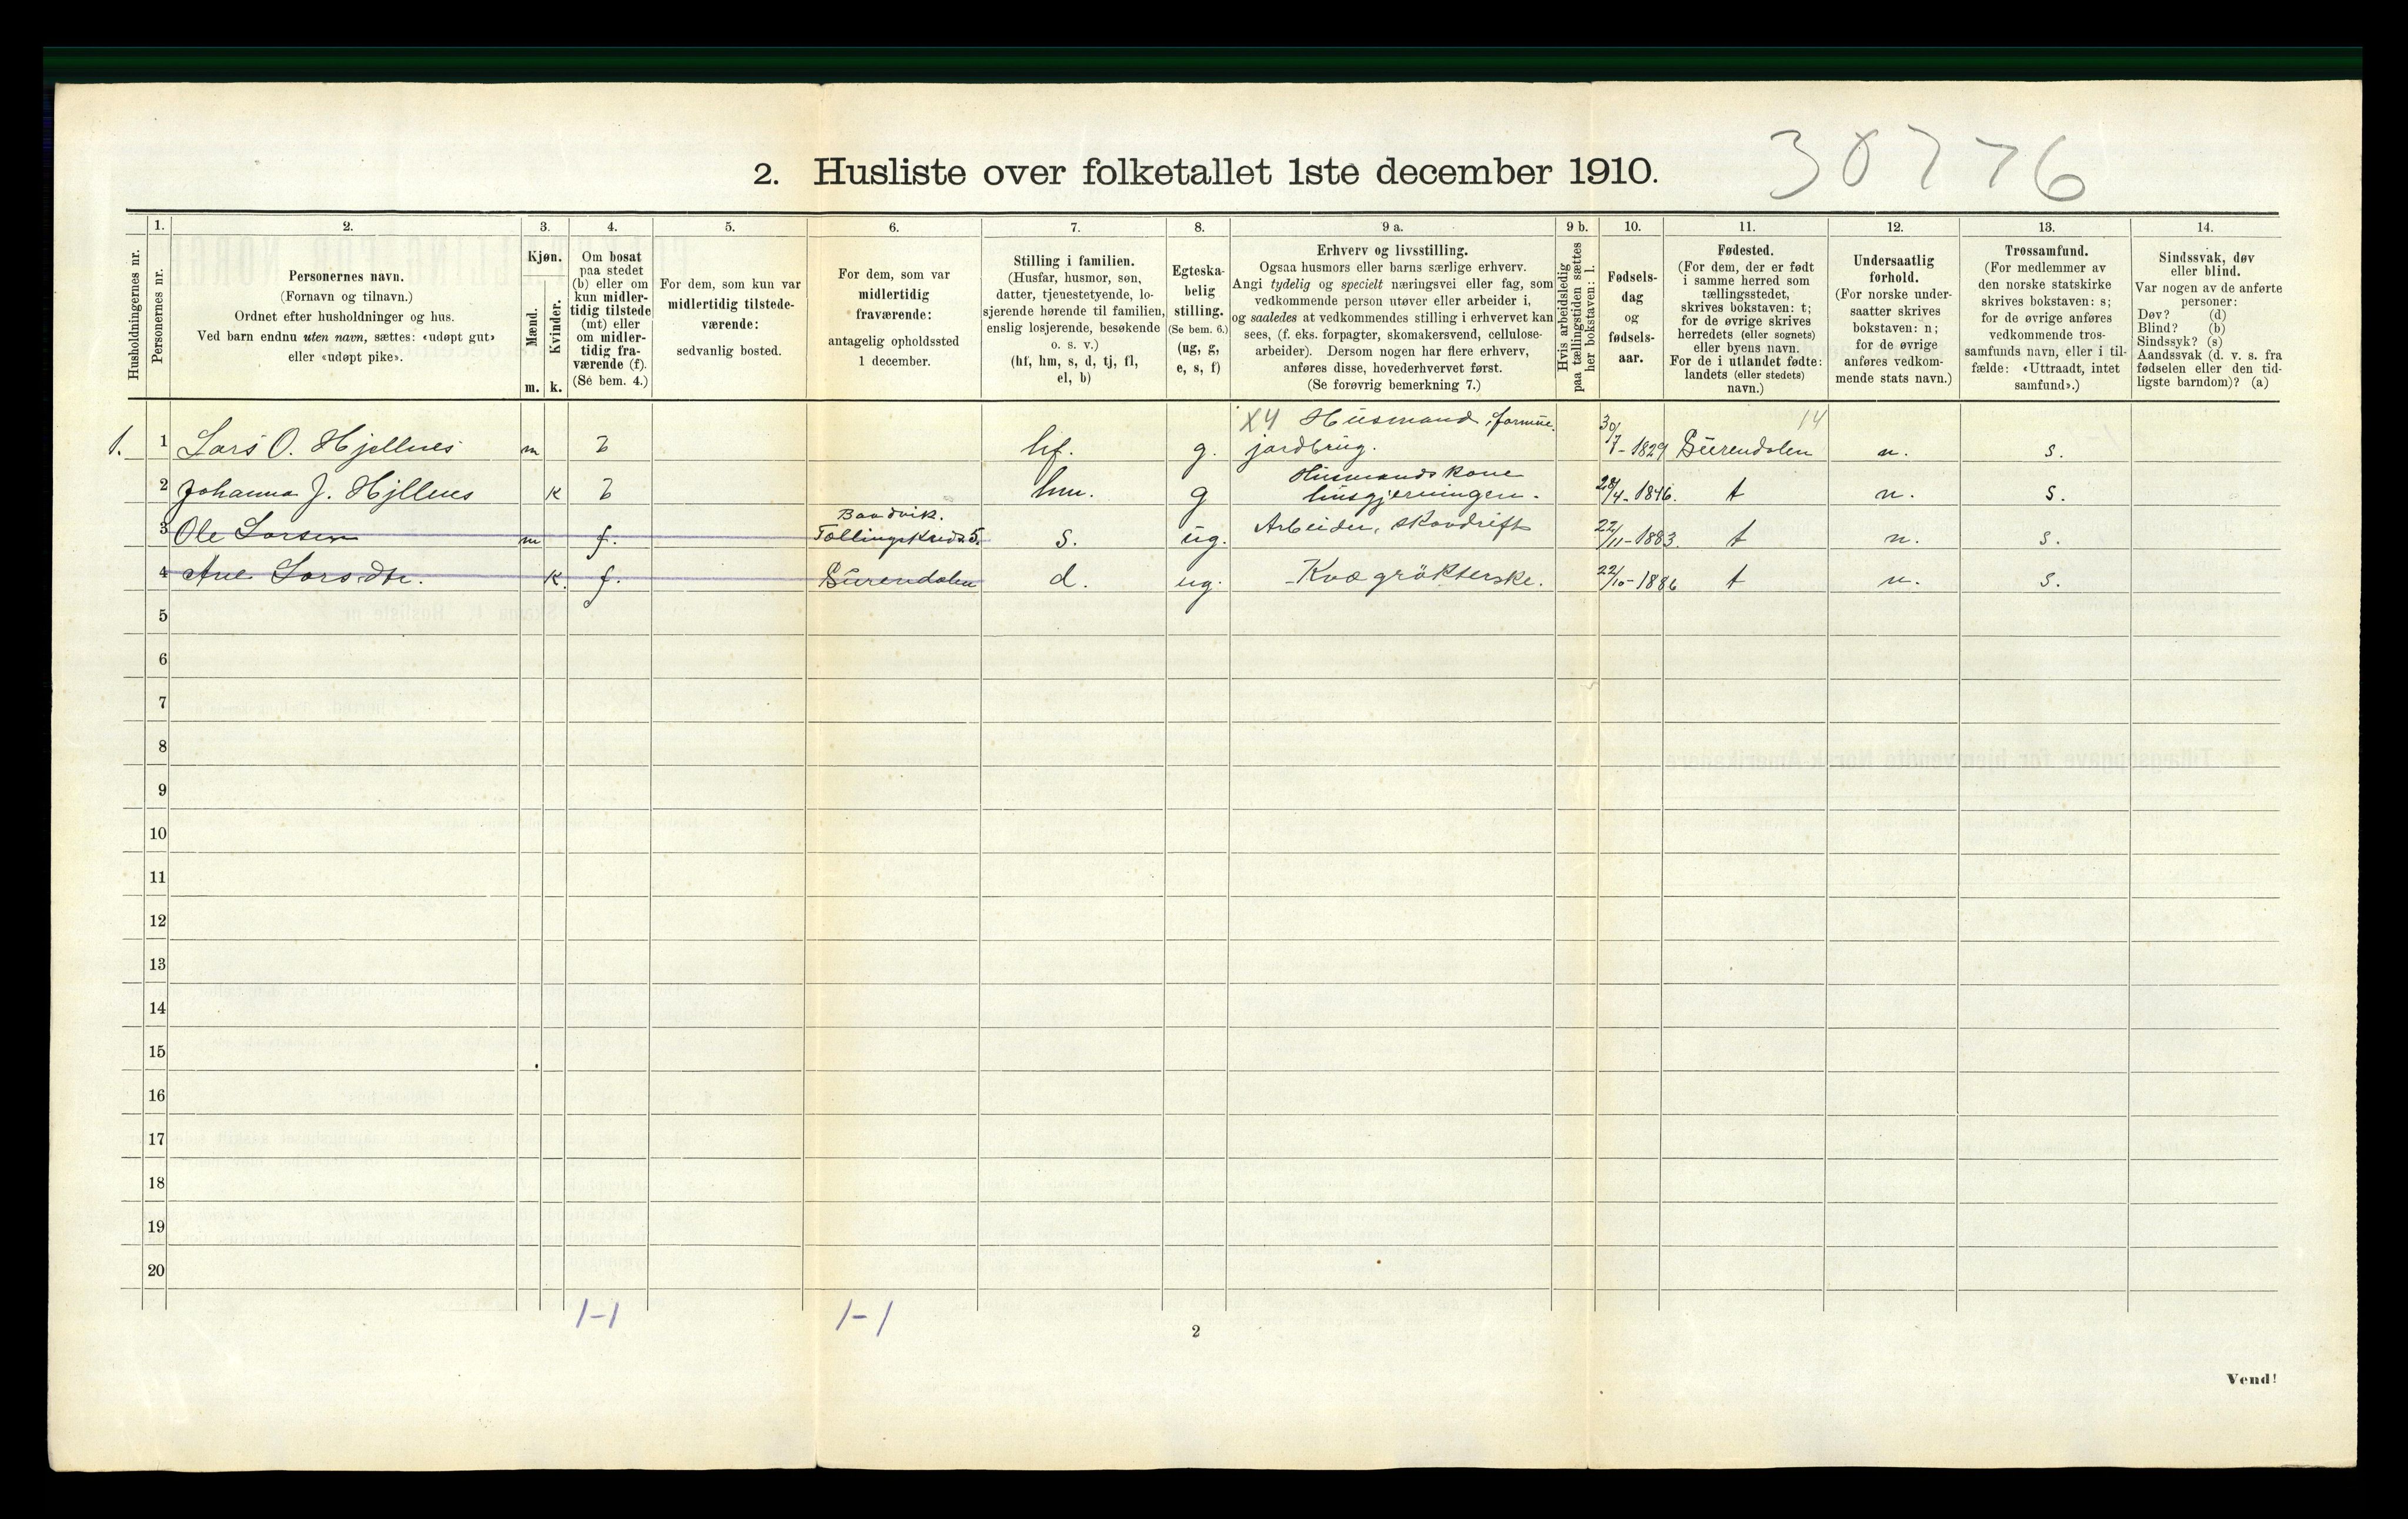 30776
2. Husliste over folketallet 1ste december 1910.
Husholdningernes nr.
1.
Personernes nr.
2.
Personernes navn.
(Fornavn og tilnavn.)
Ordnet efter husholdninger og hus.
Ved barn endnu uten navn, sættes: «udøpt gut»
eller «udøpt pike».
3.
Kjøn.
Mænd.
m.
Kvinder.
k.
4.
Om bosat
paa stedet
(b) eller om
kun midler-
tidig tilstede
(mt) eller
om midler-
tidig fra-
værende (f).
(Se bem. 4.)
5.
For dem, som kun var
midlertidig tilstede-
værende:
sedvanlig bosted.
6.
For dem, som var
midlertidig
fraværende:
antagelig opholdssted
1 december.
7.
Stilling i familien.
(Husfar, husmor, søn,
datter, tjenestetyende, lo-
sjerende hørende til familien,
enslig losjerende, besøkende
o. s. v.)
(hf, hm, s, d, tj, fl,
el, b)
8.
Egteska-
belig
stilling.
(Se bem. 6.)
(ug, g,
e, s, f)
9 a.
Erhverv og livsstilling.
Ogsaa husmors eller barns særlige erhverv.
Angi tydelig og specielt næringsvei eller fag, som
vedkommende person utøver eller arbeider i,
og saaledes at vedkommendes stilling i erhvervet kan
sees, (f. eks. forpagter, skomakersvend, cellulose-
arbeider). Dersom nogen har flere erhverv,
anføres disse, hovederhvervet først.
(Se forøvrig bemerkning 7.)
9 b.
Hvis arbeidsledig
paa tællingstiden sættes
her bokstaven: l.
10.
Fødsels-
dag
og
fødsels-
aar.
11.
Fødested.
(For dem, der er født
i samme herred som
tællingsstedet,
skrives bokstaven: t;
for de øvrige skrives
herredets (eller sognets)
eller byens navn.
For de i utlandet fødte:
landets (eller stedets)
navn.)
12.
Undersaatlig
forhold.
(For norske under-
saatter skrives
bokstaven: n;
for de øvrige
anføres vedkom-
mende stats navn.)
13.
Trossamfund.
(For medlemmer av
den norske statskirke
skrives bokstaven: s;
for de øvrige anføres
vedkommende tros-
samfunds navn, eller i til-
fælde: «Uttraadt, intet
samfund».)
14.
Sindssvak, døv
eller blind.
Var nogen av de anførte
personer:
Døv? (d)
Blind? (b)
Sindssyk? (s)
Aandssvak (d. v. s. fra
fødselen eller den tid-
ligste barndom)? (a)
X4 Husmand, 14
1. 1 Lars O. Hjellnes m b hf. g. jordbrug. 30/7-1829 Surendalen n. s.
Husmandskone
2 Johanna J. Hjllnes k b hm. g husgjerningen. 28/4-1846. t n. s.
Baadvik.
3 Ole Larsen m f. Tællingskreds 5. s. ug. Arbeider, skovdrift 22/11-1883. t n. s.
4 Ane Larsdtr. k. f. Surendalen d. ug. Kvægrökterske. 22/10-1886 t n. s.
5
6
7
8
9
10
11
12
13
14
15
16
17
18
19
20
1-1 1-1
2
Vend!